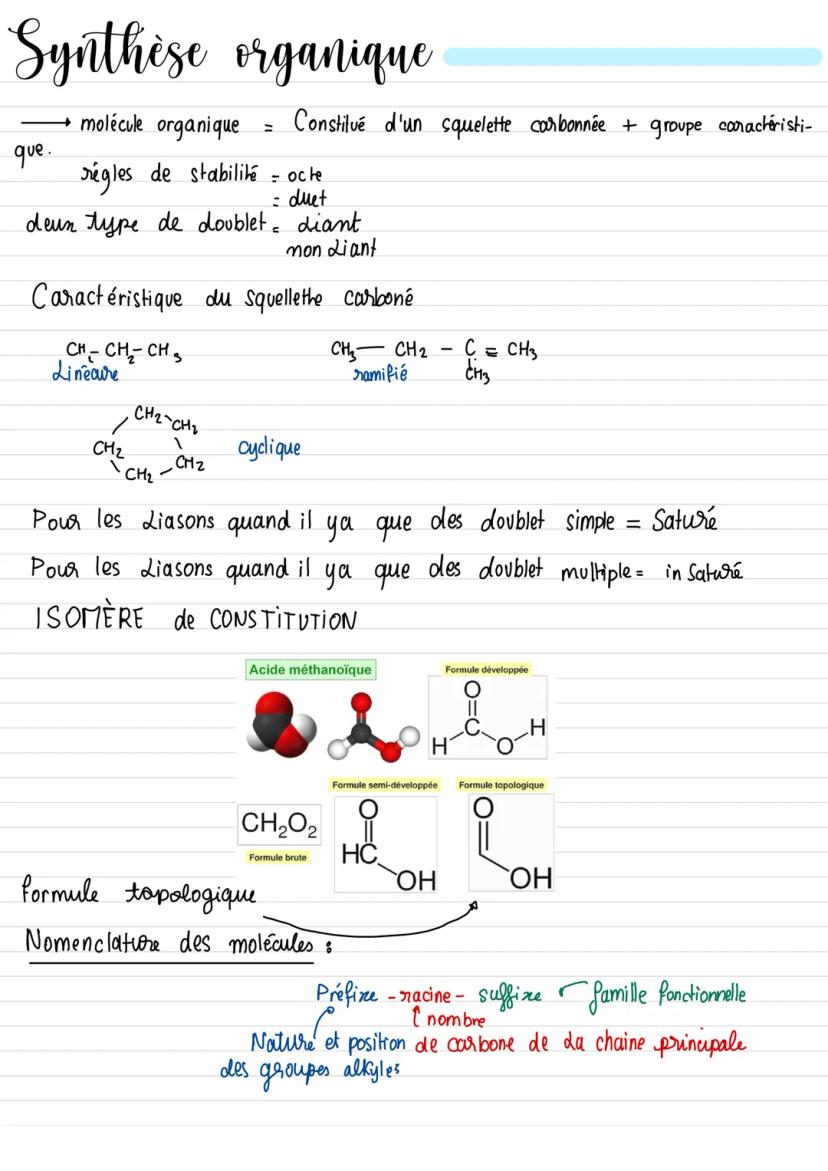 Synthèse organique
→ molécule organique = Constitué d'un squelette carbonnée + groupe caractéristi-
que.
régles de stabilité = octe
= duet
deux type de doublet = liant
non liant
Caractéristique du squellethe carboné
CH₂ - CH₂ - CH₃
CH₃ — CH₂ - C = CH₃
Linéaire
ramifié
CH₃
CH₂
CH₂
CH₂
cyclique
CH₂
CH₂
Pour les liasons quand il ya que des doublet simple = Saturé
Pour les liasons quand il ya que des doublet multiple = in saturé
ISOMÈRE de CONSTITUTION
Acide méthanoïque
Formule développée
O
C
H
H
O
Formule semi-développée
Formule topologique
O
O
CH₂O₂
HC
Formule brute
OH
OH
formule topologique
Nomenclature des molécules :
Préfixe - racine - suffixe famille fonctionnelle
nombre
Nature et position de carbone de la chaine principale
des groupes alkyles